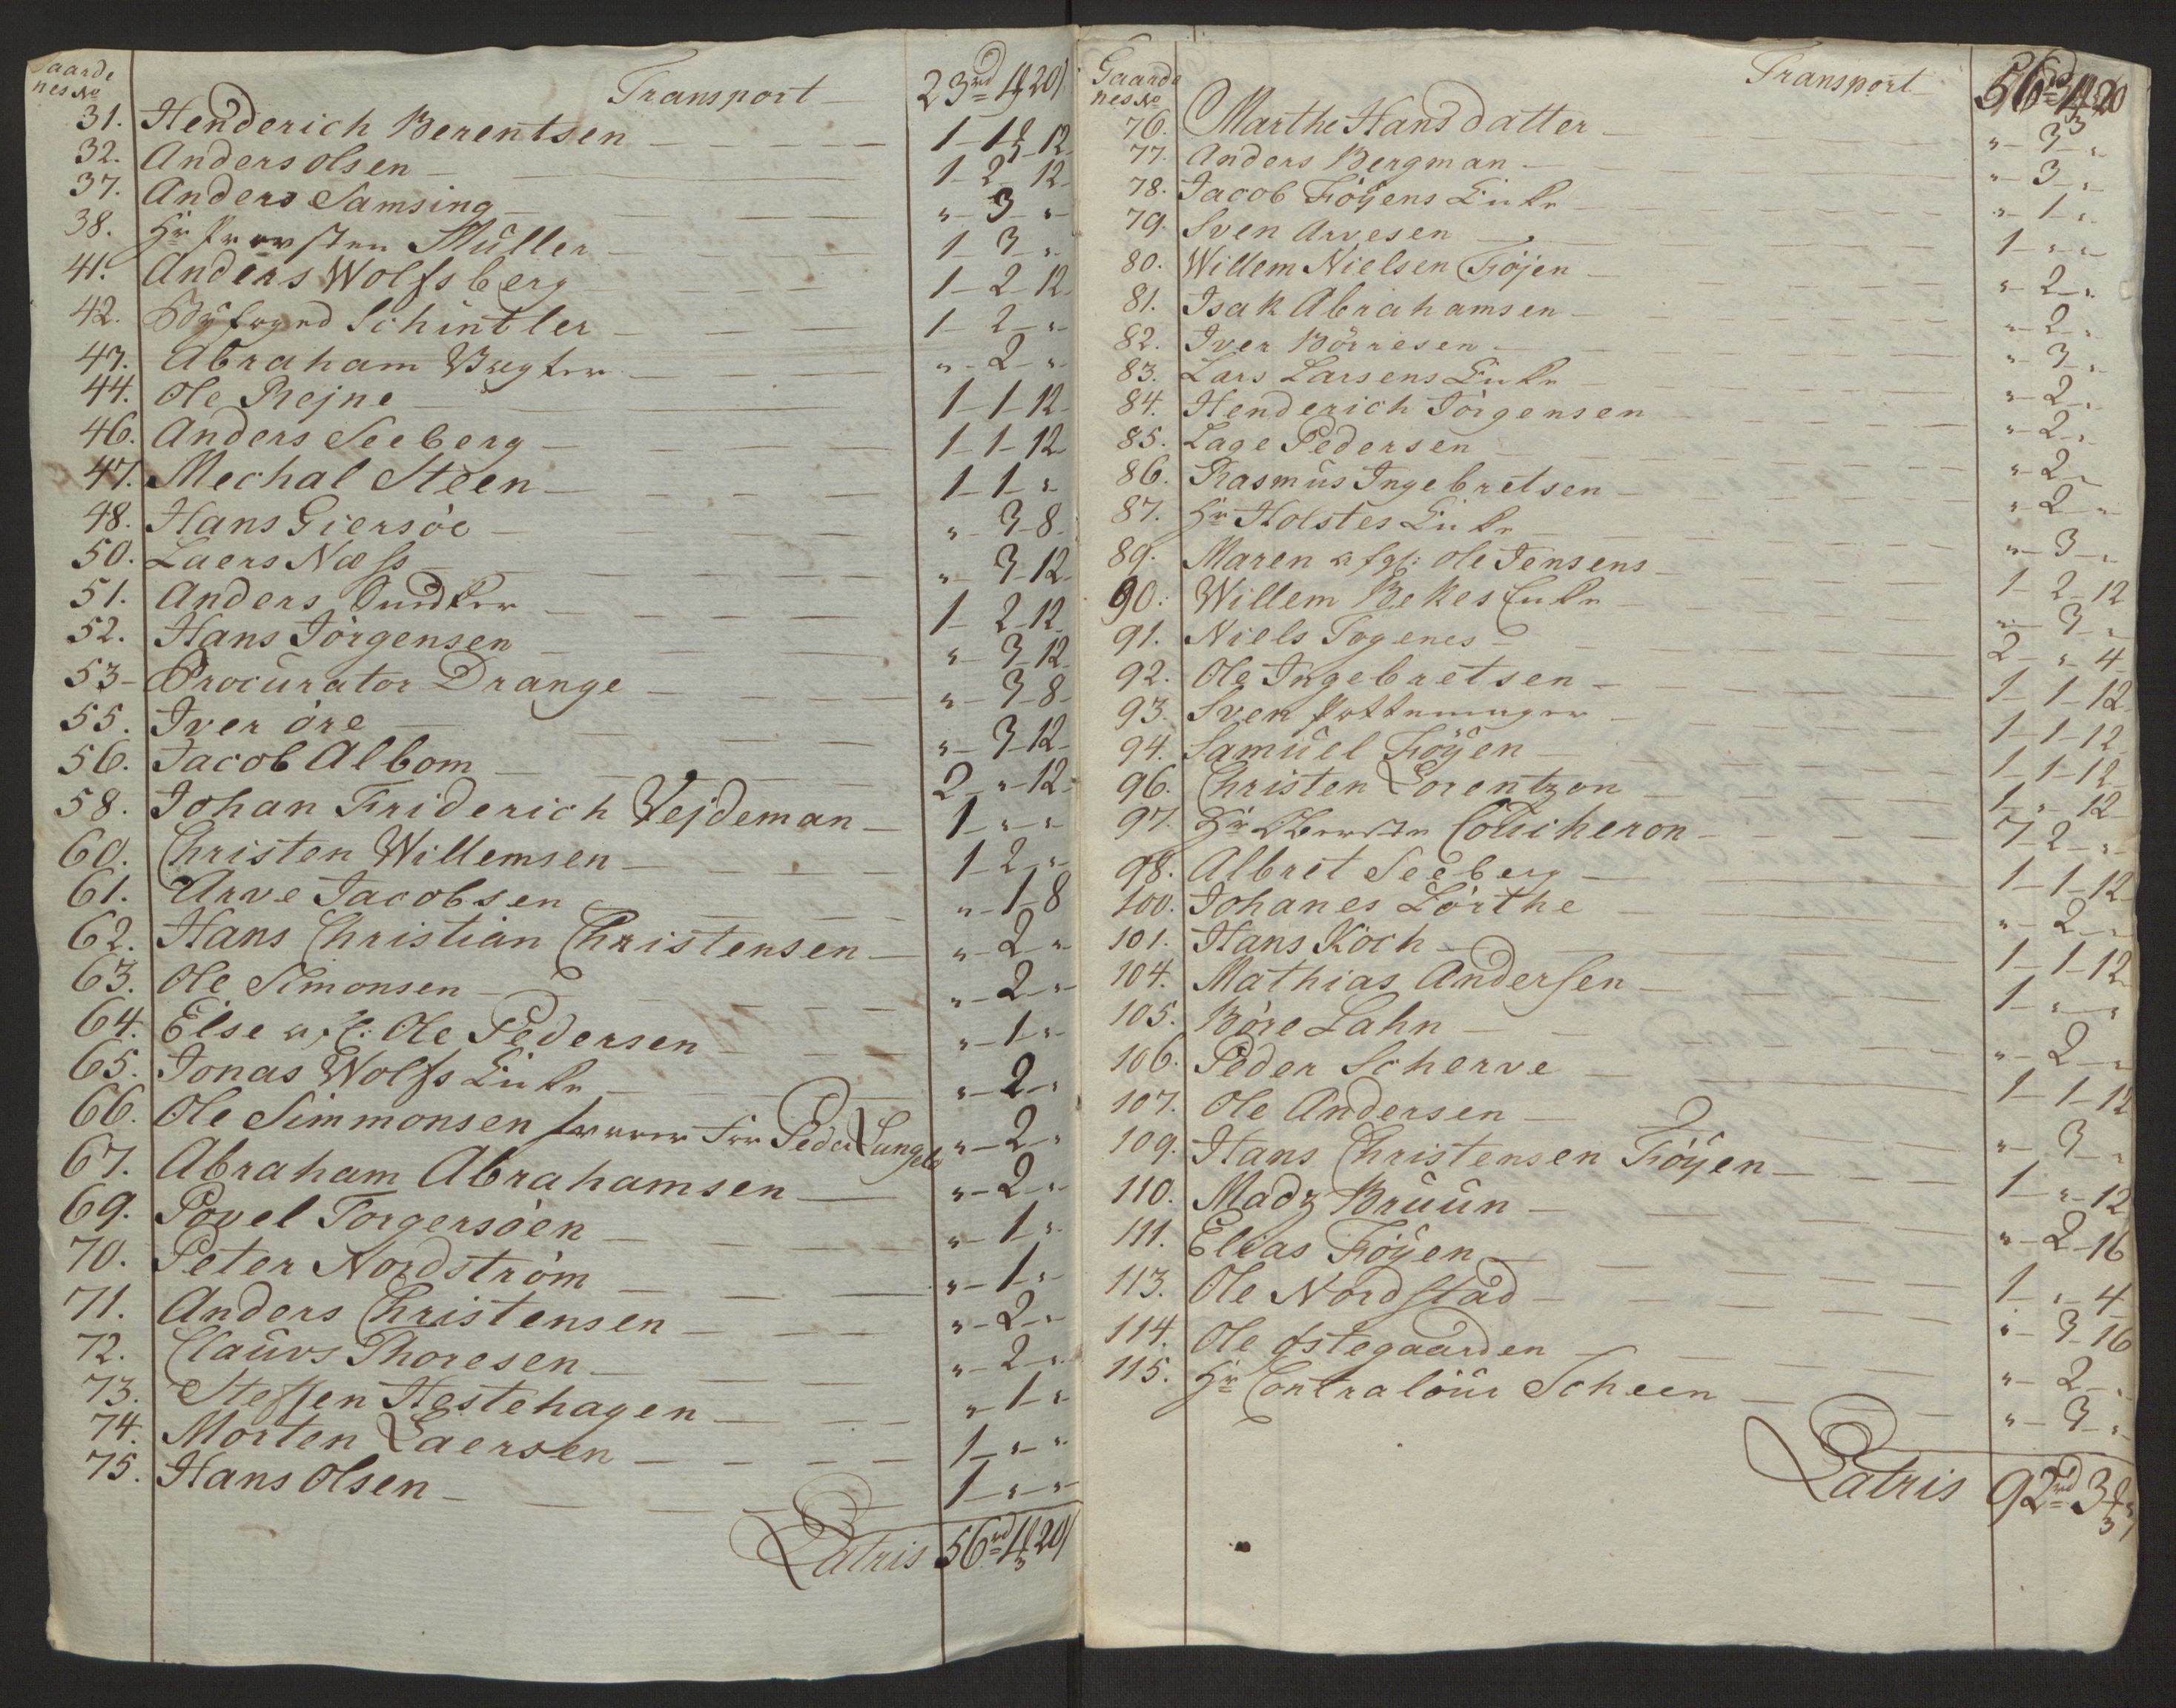 Gaarde
nes No Transport 23rd 4 20
31. Henderich Berentsen 1 - 1 - 12
32. Anders olsen 1 - 2 - 12
37. Anders Samsing " - 3 - "
38. Hr Provsten Müller 1 - 3 - "
41. Anders Wolfsberg 1 - 2 - 12
42. Byfogd Schintler 1 - 2 - "
43. Abraham " - 2 - "
44. Ole Rejne 1 - 1 - 12
46. Anders Seeberg 1 - 1 - 12
47. Mechal Steen 1 - 1 - "
48. Hans Giersöe " - 3 - 8
50. Laers Næss " - 3 - 12
51. Anders 1 - 2 - 12
52. Hans Jörgensen " - 3 - 12
53 - Procurator Drange " - 3 - 8
55. Iver öre " - 3 - 12
56. Jacob Albom 2 - " - 12
58. Johan Friderich Vejdeman 1 - " - "
60. Christen Willemsen 1 - 2 - "
61. Arve Jacobsen " - 1 - 8
62. Hans Christian Christensen " - 2 - "
63. Ole Simonsen " - 2 - "
64. Else Ole Pedersen " - 1 - "
65. Jonas Wolfs Enke " - 2 - "
66. Ole Simmonsen Peder Langelv " - 2 - "
67. Abraham Abrahamsen " - 2 - "
69. Povel Torgersöen " - 1 - "
70. Peter Nordström " - 1 - "
71. Anders Christensen " - 2 - "
72. Claüvs Thoresen " - 2 - "
73. Steffen Hestehagen " - 1 - "
74. Morten Laersen 1 - " - "
75. Hans Olsen 1 - " - "
Latris 56rd 4 20
Gaarde
nes No Transport 56rd 4 20
76. Marthe Hansdatter " - 3 - "
77. Anders Bergman " - 3 - "
78. Jacob Föÿens Enke " - 1 - "
79. Sven Arvesen 1 - " - "
80. Willem Nielsen Föjen " - 2 - "
81. Isak Abrahamsen " - 2 - "
82. Iver Börresen " - 3 - "
83. Lars Larsens Enke " - 2 - "
84. Henderich Jörgensen " - 2 - "
85. Lage Pedersen " - 2 - "
86. Rasmüs Ingebretsen " - 2 - "
87. Hr Holstes Enke " - 3 - "
89. Maren Ole Jensens 1 - 2 - 12
90. Willem Bekes Enke " - 3 - "
91. Niels Togenes 2 - " - 4
92. Ole Ingebretsen 1 - 1 - 12
93. Sven 1 - 1 - 12
94. Samüel Föÿen 1 - 1 - 12
96. Christen Lorentzon 1 - " - 12
97. Hr Obersten Coucheron 7 - 2 - "
98. Albret Seeberg 1 - 1 - 12
100. Johanes Lörthe " - 2 - "
101. Hans Koch 1 - 1 - 12
104. Mathias Andersen 1 - " - "
105. Böre Lahn " - 2 - "
106. Peder Scherve 1 - 1 - 12
107. Ole Andersen " - 3 - "
109. Hans Christensen Föÿen 1 - " - 12
110. Madz Brüün " - 2 - 16
111. Elias Föÿen 1 - " - 4
113. Ole Nordstad " - 3 - 16
114. Ole østegaarden " - 2 - "
115. Hr Contralöür Scheen " - 3 - "
Latris 92rd 3